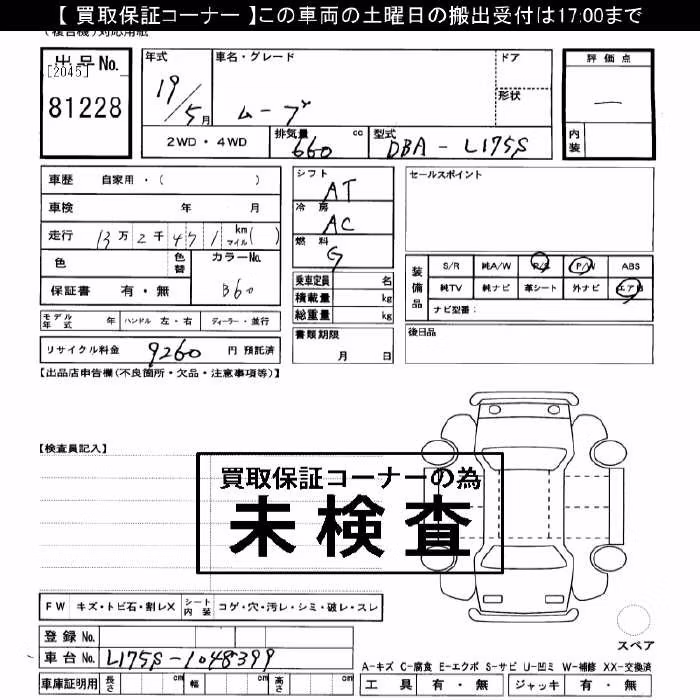 【 買取保証コーナー 】この車両の土曜日の搬出受付は17:00まで
(複合機)対応用紙
出品No.
[2045]
81228
年式
19/5月
車名・グレード
ムーブ
ドア
形状
評価点
―
内装
2WD・4WD
排気量
660
cc
型式
DBA - L175S
車歴 自家用・( )
車検 年 月
走行 13万2千471 km マイル( )
色
色替
カラーNo.
B60
保証書 有・無
シフト
AT
冷房
AC
燃料
G
乗車定員 名
積載量 kg
総重量 kg
書類期限
月 日
セールスポイント
装備品
S/R 純A/W P/S P/W ABS
純TV 純ナビ 革シート 外ナビ エアB
ナビ型番:
後日品
モデル年式 年 ハンドル 左・右 ディーラー・並行
リサイクル料金 9260 円 預託済
【出品店申告欄(不良箇所・欠品・注意事項等)】
【検査員記入】
買取保証コーナーの為
未検査
FW キズ・トビ石・割レX シート内装 コゲ・穴・汚レ・シミ・破レ・スレ
登録No.
車台No. L175S-1048399
車庫証明用 長さ cm 幅 cm 高さ cm
スペア
A-キズ C-腐食 E-エクボ S-サビ U-凹ミ W-補修 XX-交換済
工具 有・無 ジャッキ 有・無